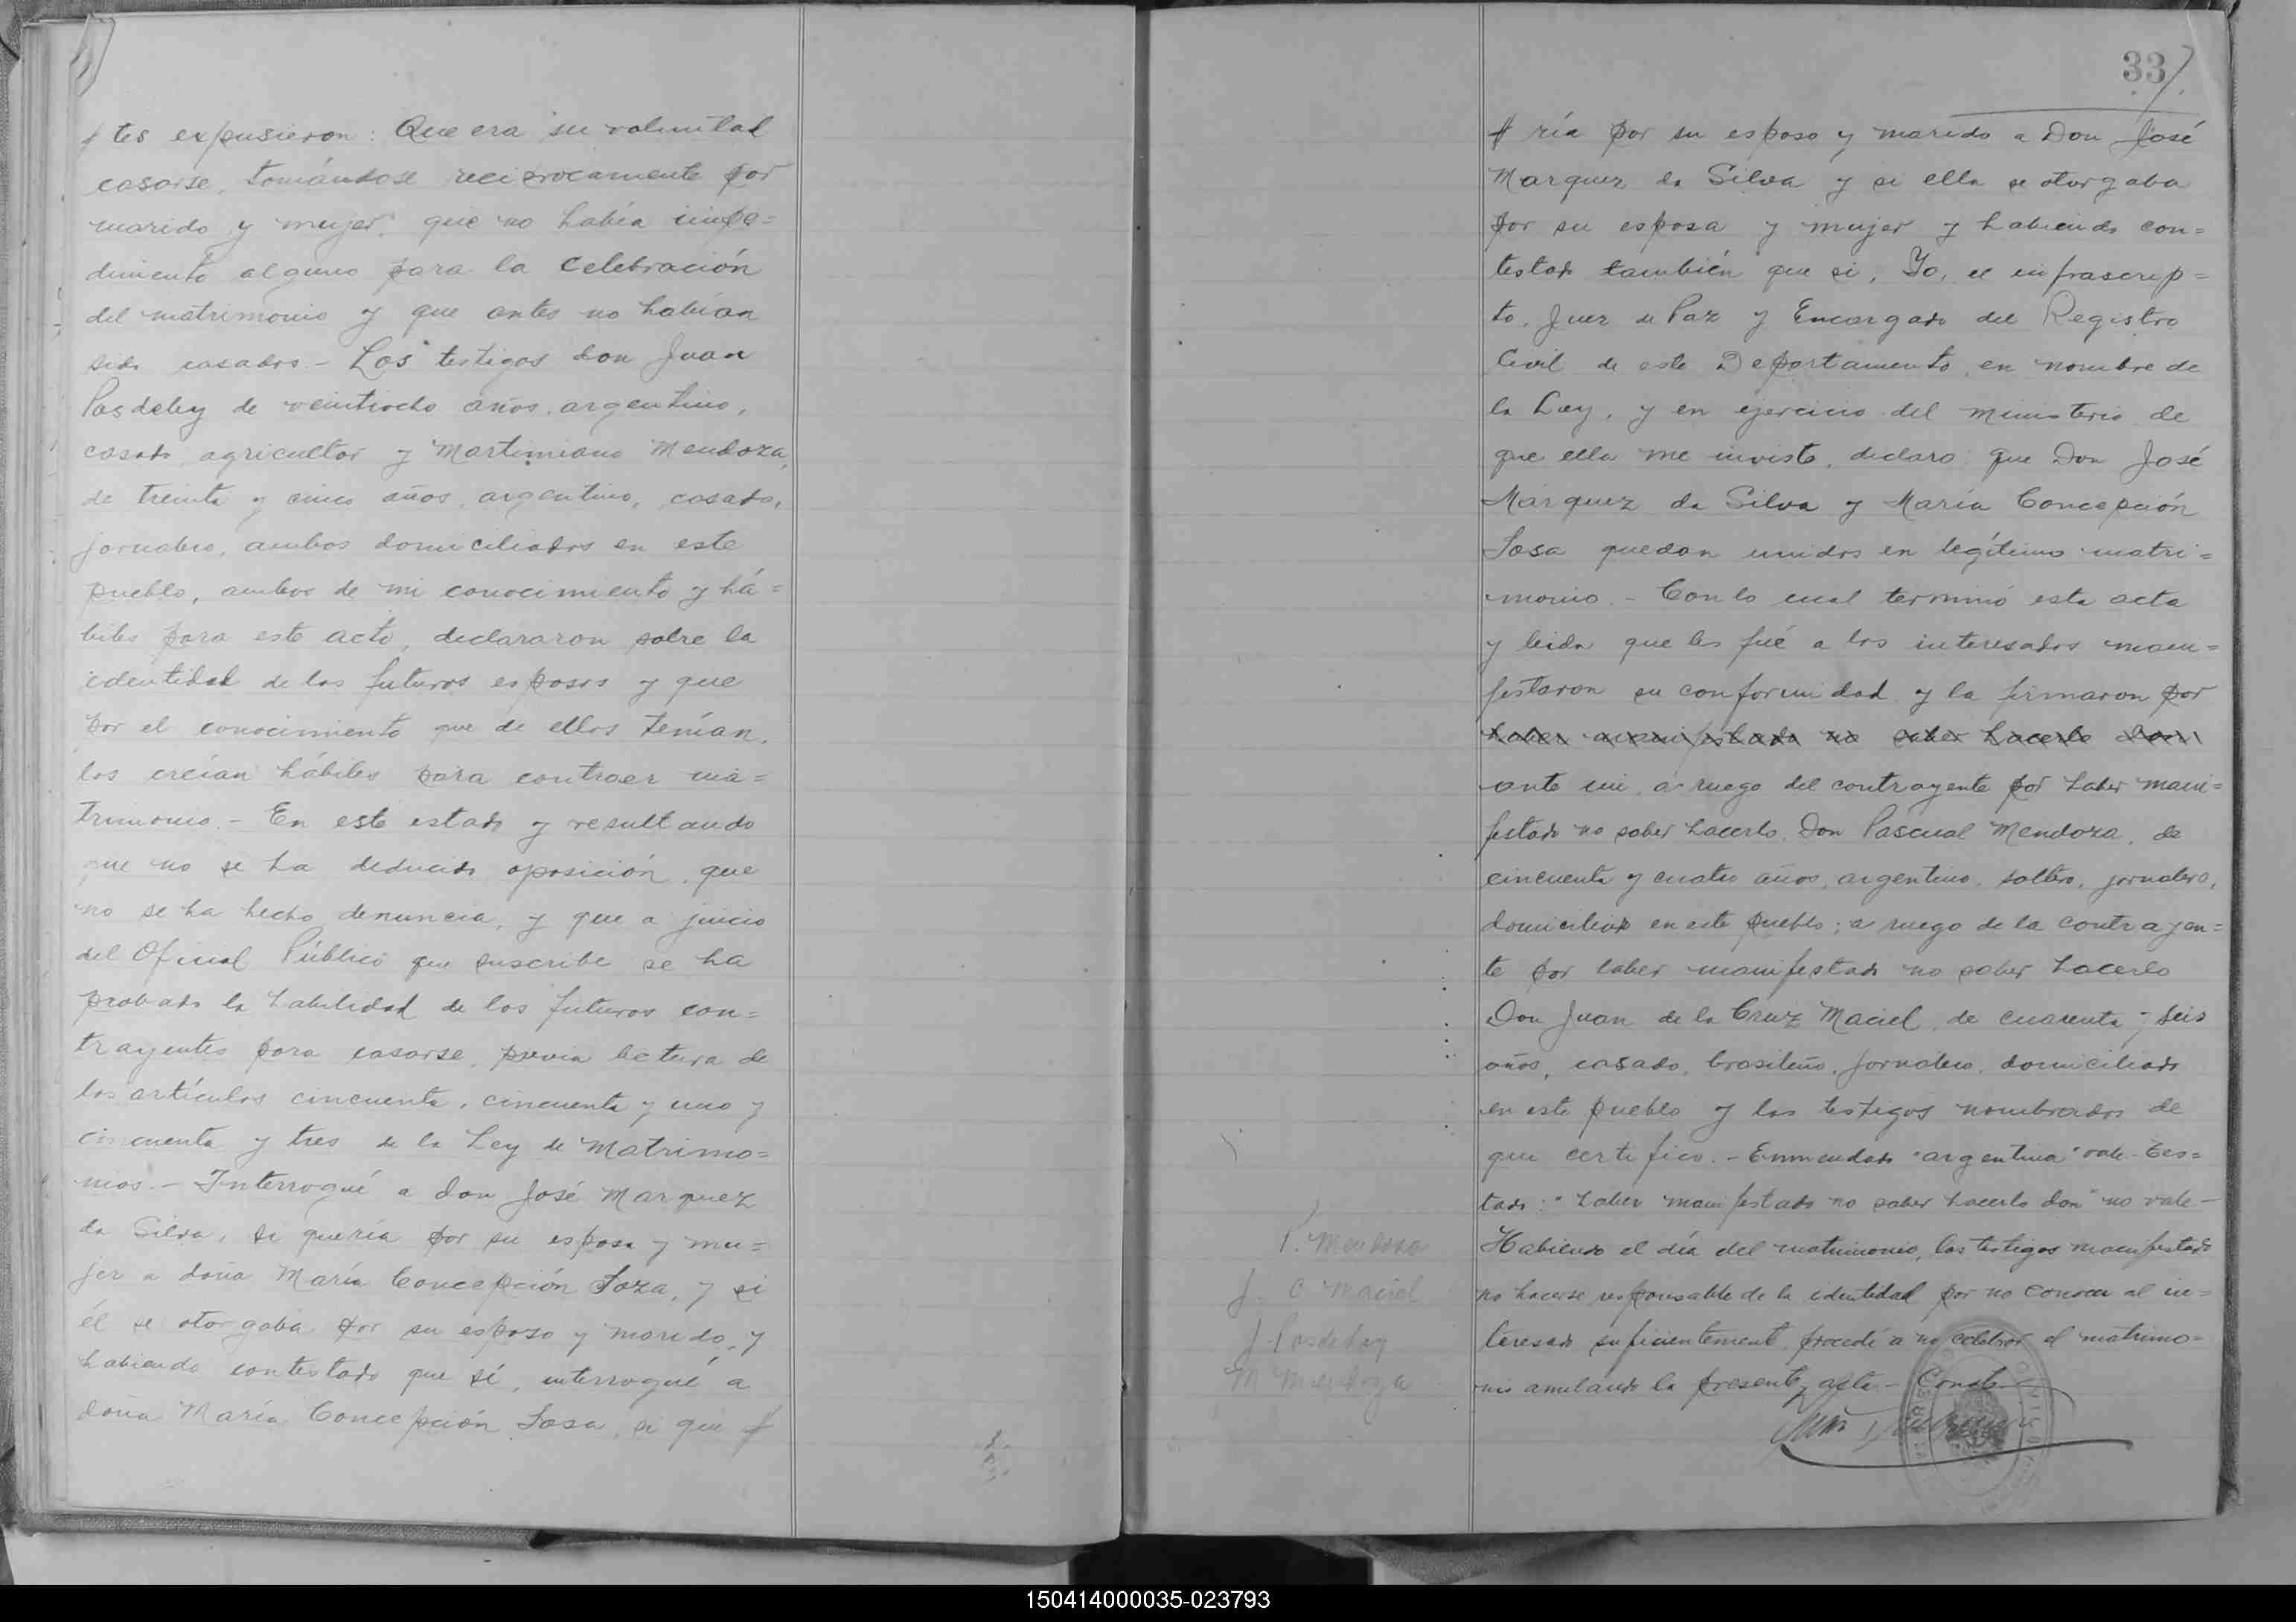 tes expusieron: Que era su voluntad
casarse, tomándose reciprocamente por
marido y mujer, que no había impe=
dimento alguno para la celebración
del matrimonio y que antes no habían
sido casados.- Los testigos don Juan
Pasdeley de veintiocho años, argentino,
casado, agricultor y Martimiano Mendoza,
de treinta y cinco años, argentino, casado,
jornalero, ambos domiciliados en este
pueblo, ambos de mi conocimiento y há=
biles para este acto, declararon sobre la
identidad de los futuros esposos y que
por el conocimiento que de ellos tenían,
los creían hábiles para contraer ma=
trimonio.- En este estado y resultando
que no se ha deducido oposición, que
no se ha hecho denuncia, y que a juicio
del Oficial Público que suscribe se ha
probado la habilidad de los futuros con=
trayentes para casarse, previa lectura de
los artículos cincuenta, cincuenta y uno y
cincuenta y tres de la Ley de Matrimo=
nios.- Interrogué a don José Marquez
da Silva, si quería por su esposa y mu=
jer a doña María Concepción Soza, y si
él se otorgaba por su esposo y marido, y
habiendo contestado que sí, interrogué a
doña María Concepción Sosa, si que
33
ría por su esposo y marido a Don José
Marquez da Silva y si ella se otorgaba
por su esposa y mujer y habiendo con=
testado también que si, Yo, el infrascrip=
to, Juez de Paz y Encargado del Registro
Civil de este Departamento, en nombre de
la Ley, y en ejercicio del ministerio de
que ella me inviste, declaro: que Don José
Márquez da Silva y María Concepción
Sosa quedan unidos en legítimo matri=
monio.- Con lo cual terminó esta acta
y leida que les fué a los interesados mani=
festaron su conformidad y la firmaron por
haber manifestado no saber hacerlo don
ante mi, a ruego del contrayente por haber mani=
festado no saber hacerlo, Don Pascual Mendoza, de
cincuenta y cuatro años, argentino, soltero, jornalero,
domiciliado en este pueblo; a ruego de la contrayen=
te por haber manifestado no saber hacerlo
Don Juan de la Cruz Maciel, de cuarenta y seis
años, casado, brasileño, jornalero, domiciliado
en este pueblo y los testigos nombrados de
que certifico.- Enmendado "argentina" vale- Tes=
tado: "haber manifestado no saber hacerlo don" no vale-
Habiendo el día del matrimonio, los testigos manifestado
no hacerse responsable de la identidad por no conocer al in=
teresado suficientemente, procedí a no celebrar el matrimo=
nio anulando la presente acta.- Conste.-
P. Mendoza
J. C Maciel
J. Pasdeley
M Mendoza
150414000035-023793